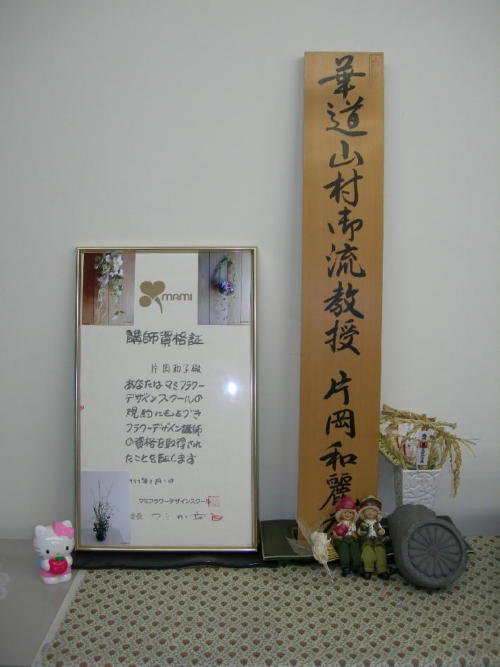 mami
講師資格証
片岡和子殿
あなたはマミフラワー
デザインスクールの
規約にもとづき
フラワーデザイン講師
の資格を取得され
たことを証します
マミフラワーデザインスクール
華道山村御流教授 片岡和麗